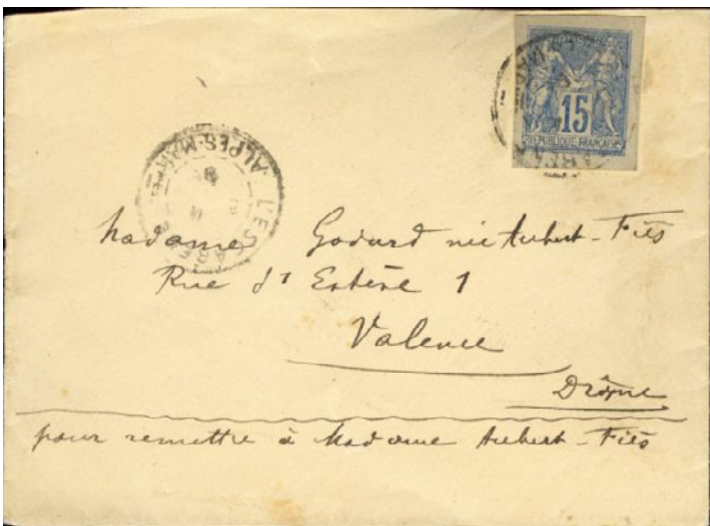 15
REPUBLIQUE FRANÇAISE
L'ESCARÈNE
ALPES-MARmes
Madame Godard née Aubert-Fiés
Rue d' 1
Valence
Drôme
pour remettre à Madame Aubert-Fiés